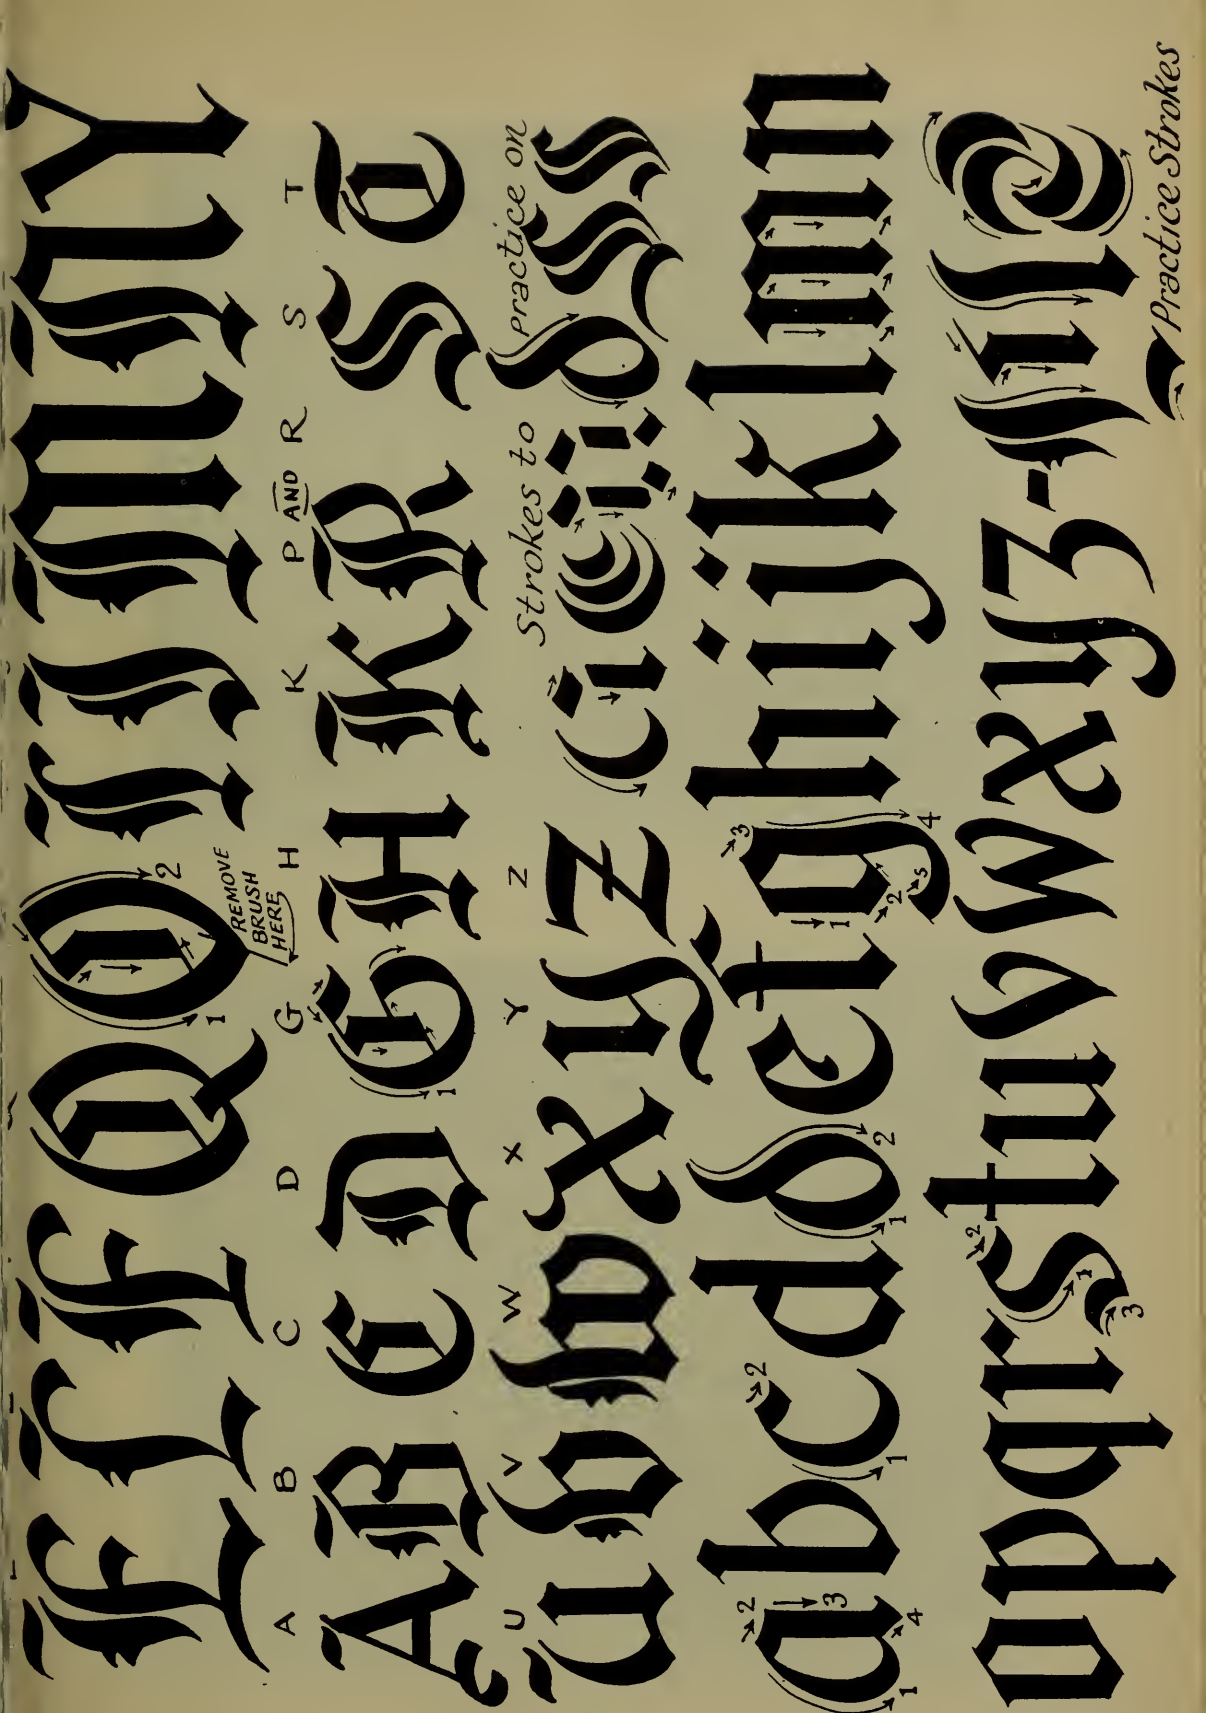 E L F Q O I J M N Y
1 2
REMOVE
BRUSH
HERE
A B C D G H K P AND R S T
A B C D G H K R S T
1
U V W X Y Z Strokes to Practice on
U V W X Y Z
a b c d d e f g h i j k l m n
1 2 3 4 1 2 1 2 1 2 3 4 5
o p q r s t u v w x y z -
1 2 3
Practice Strokes